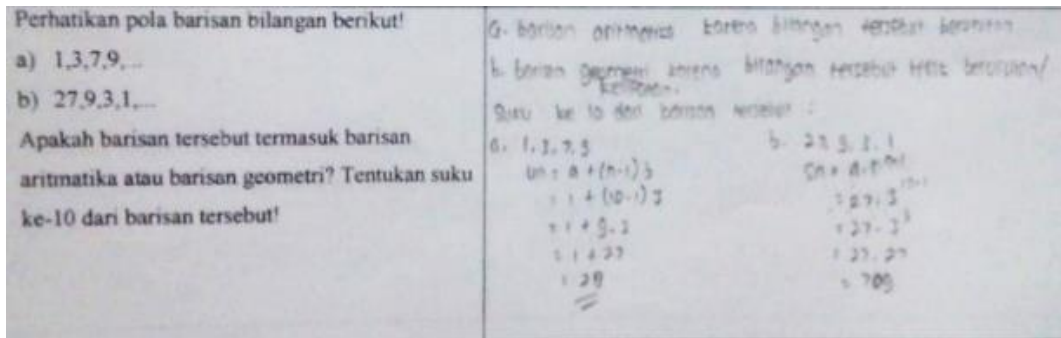 Perhatikan pola barisan bilangan berikut!
a) 1,3,7,9,...
b) 27,9,3,1,...
Apakah barisan tersebut termasuk barisan
aritmatika atau barisan geometri? Tentukan suku
ke-10 dari barisan tersebut!
a. barisan aritmatika karena bilangan tersebut berurutan
b. barisan geometri karena bilangan tersebut tidak berurutan/
kelipatan.
Suku ke 10 dari barisan tersebut :
a. 1, 3, 7, 9
Un = a + (n-1) b
= 1 + (10-1) 3
= 1 + 9.3
= 1 + 27
= 28
b. 27, 9, 3, 1
= 27.
= 27. 3
= 27. 27
= 709